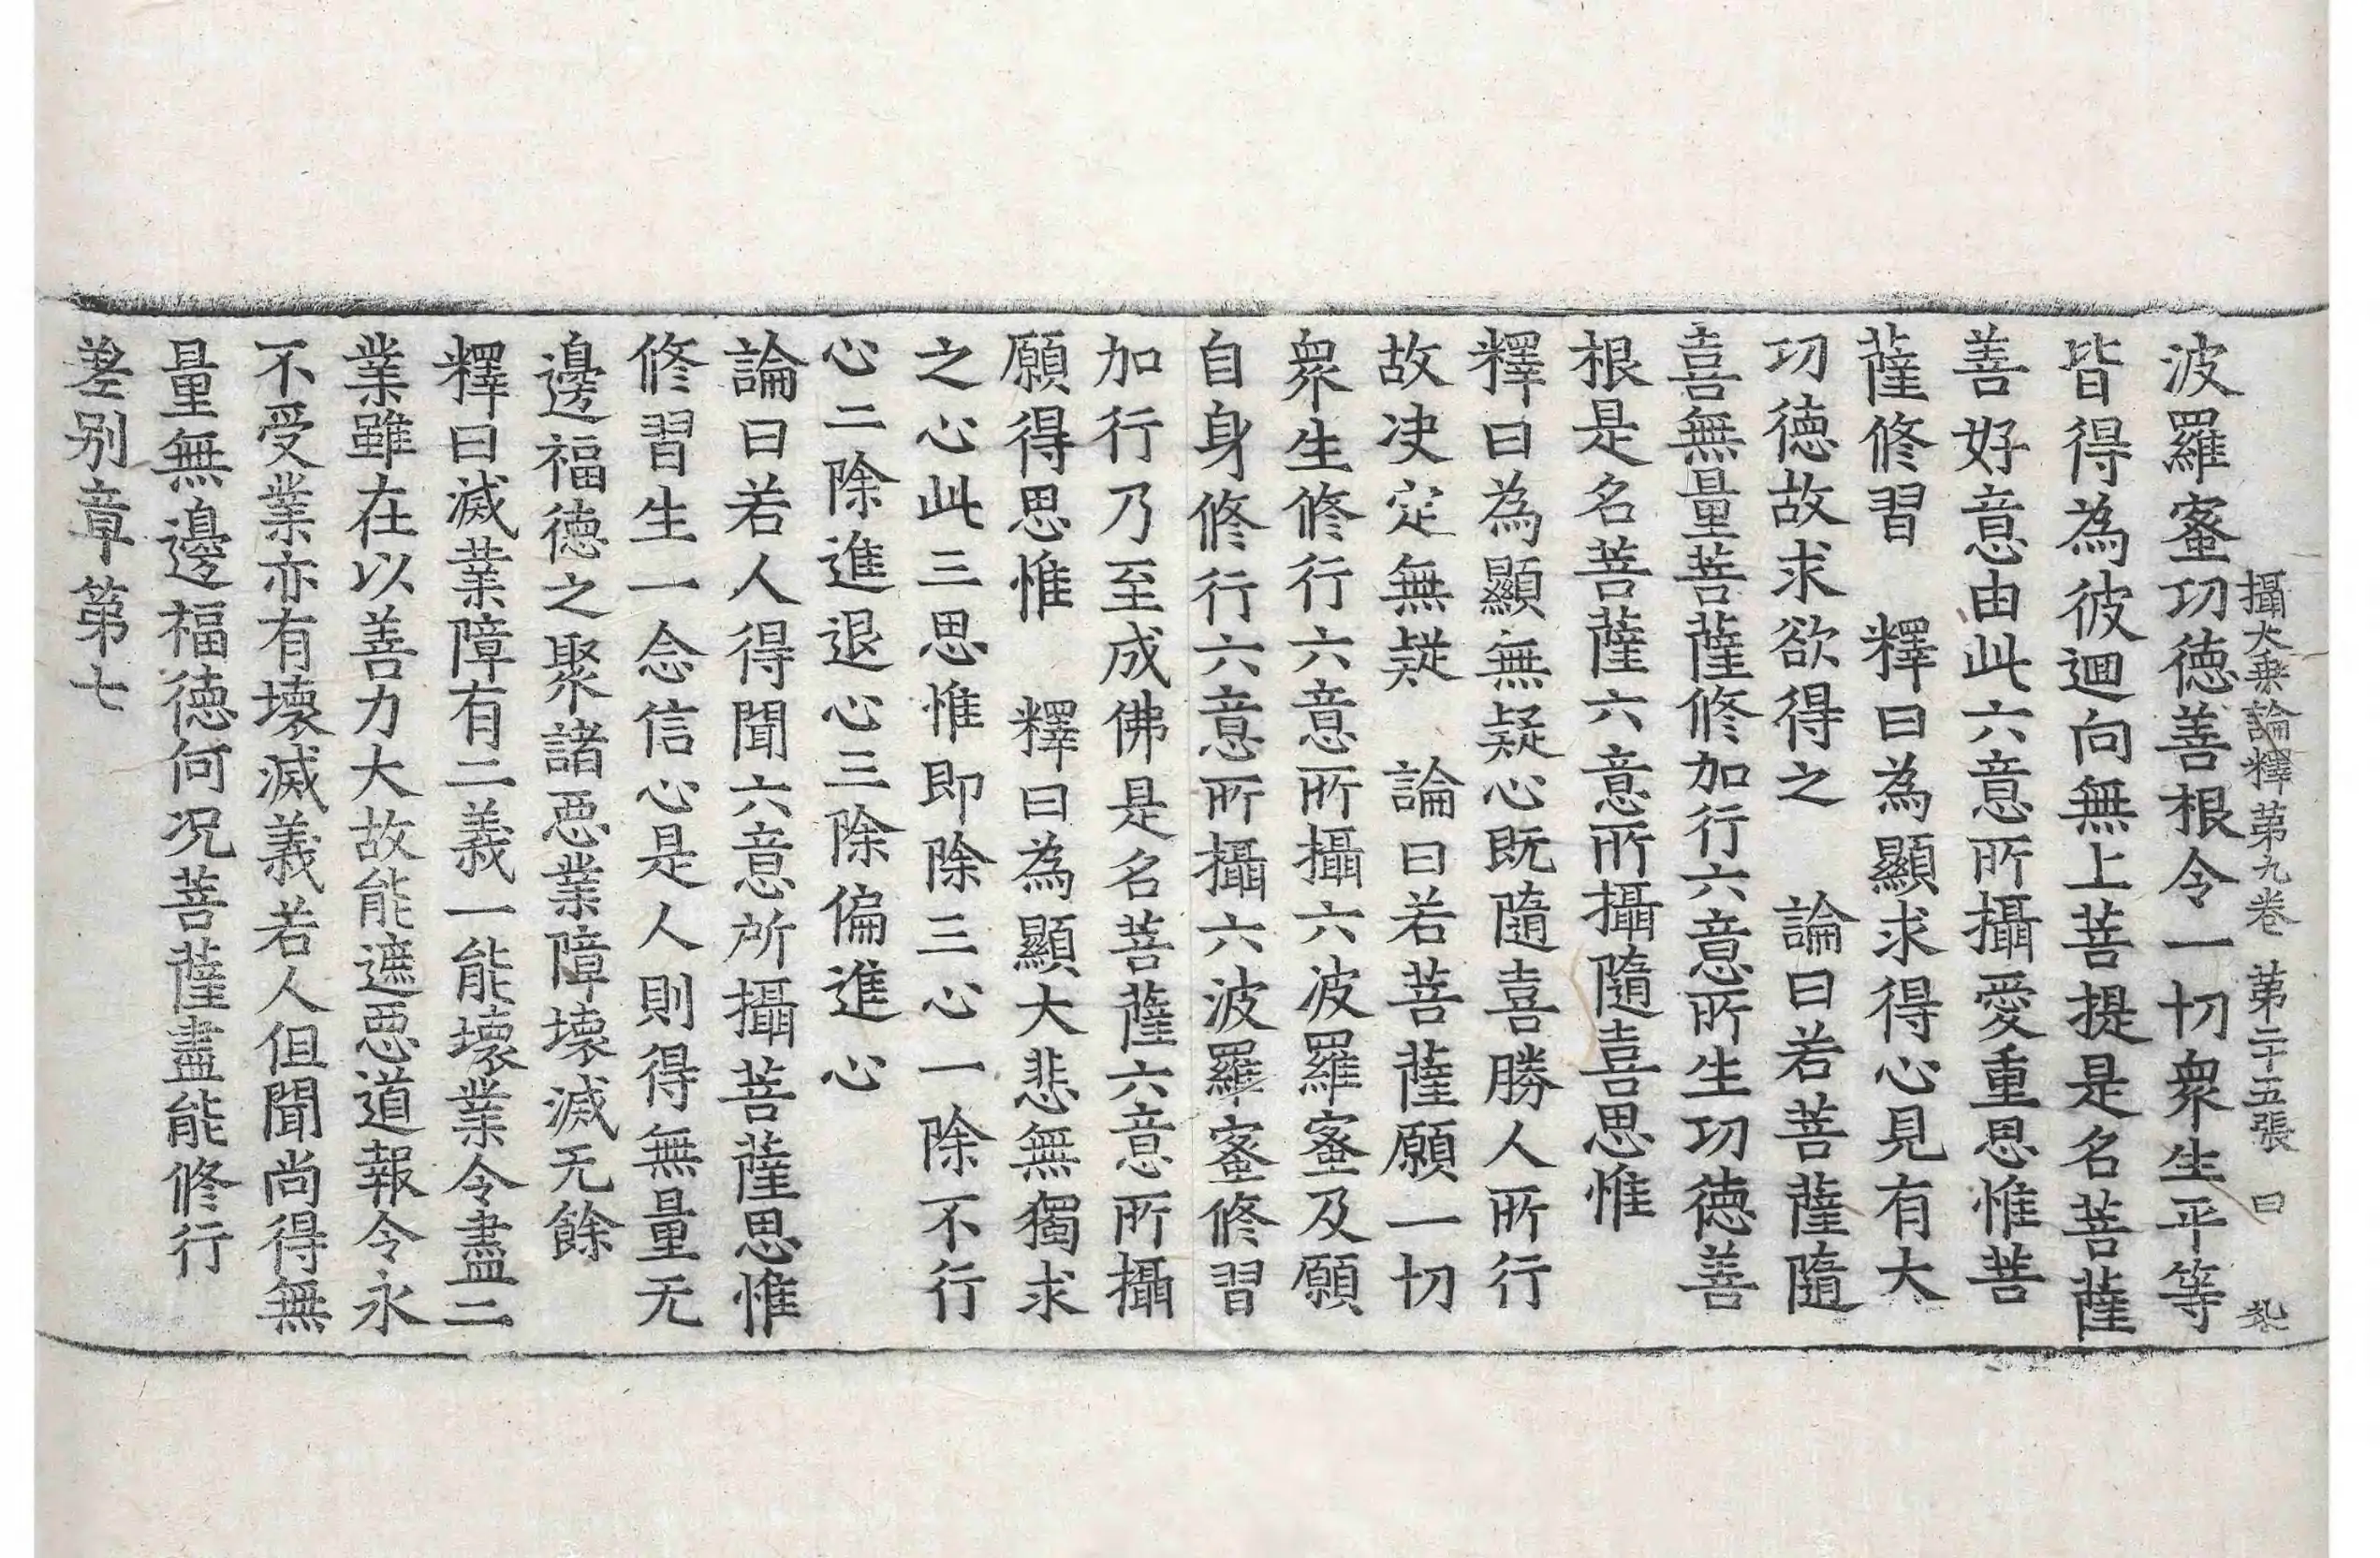 攝大乗論釋第九卷 第二十五張 曰
波羅蜜功徳善根令一切衆生平等
皆得為彼迴向無上菩提是名菩薩
善好意由此六意所攝愛重思惟菩
薩修習 釋曰為顯求得心見有大
功徳故求欲得之 論曰若菩薩隨
喜無量菩薩修加行六意所生功徳善
根是名菩薩六意所攝隨喜思惟
釋曰為顯無疑心既隨喜勝人所行
故决定無疑 論曰若菩薩願一切
衆生修行六意所攝六波羅蜜及願
自身修行六意所攝六波羅蜜修習
加行乃至成佛是名菩薩六意所攝
願得思惟 釋曰為顯大悲無獨求
之心此三思惟即除三心一除不行
心二除進退心三除偏進心
論曰若人得聞六意所攝菩薩思惟
修習生一念信心是人則得無量无
邊福徳之聚諸惡業障壊滅无餘
釋曰滅業障有二義一能壊業令盡二
業雖在以善力大故能遮惡道報令永
不受業亦有壊滅義若人但聞尚得無
量無邊福徳何况菩薩盡能修行
差别章第七